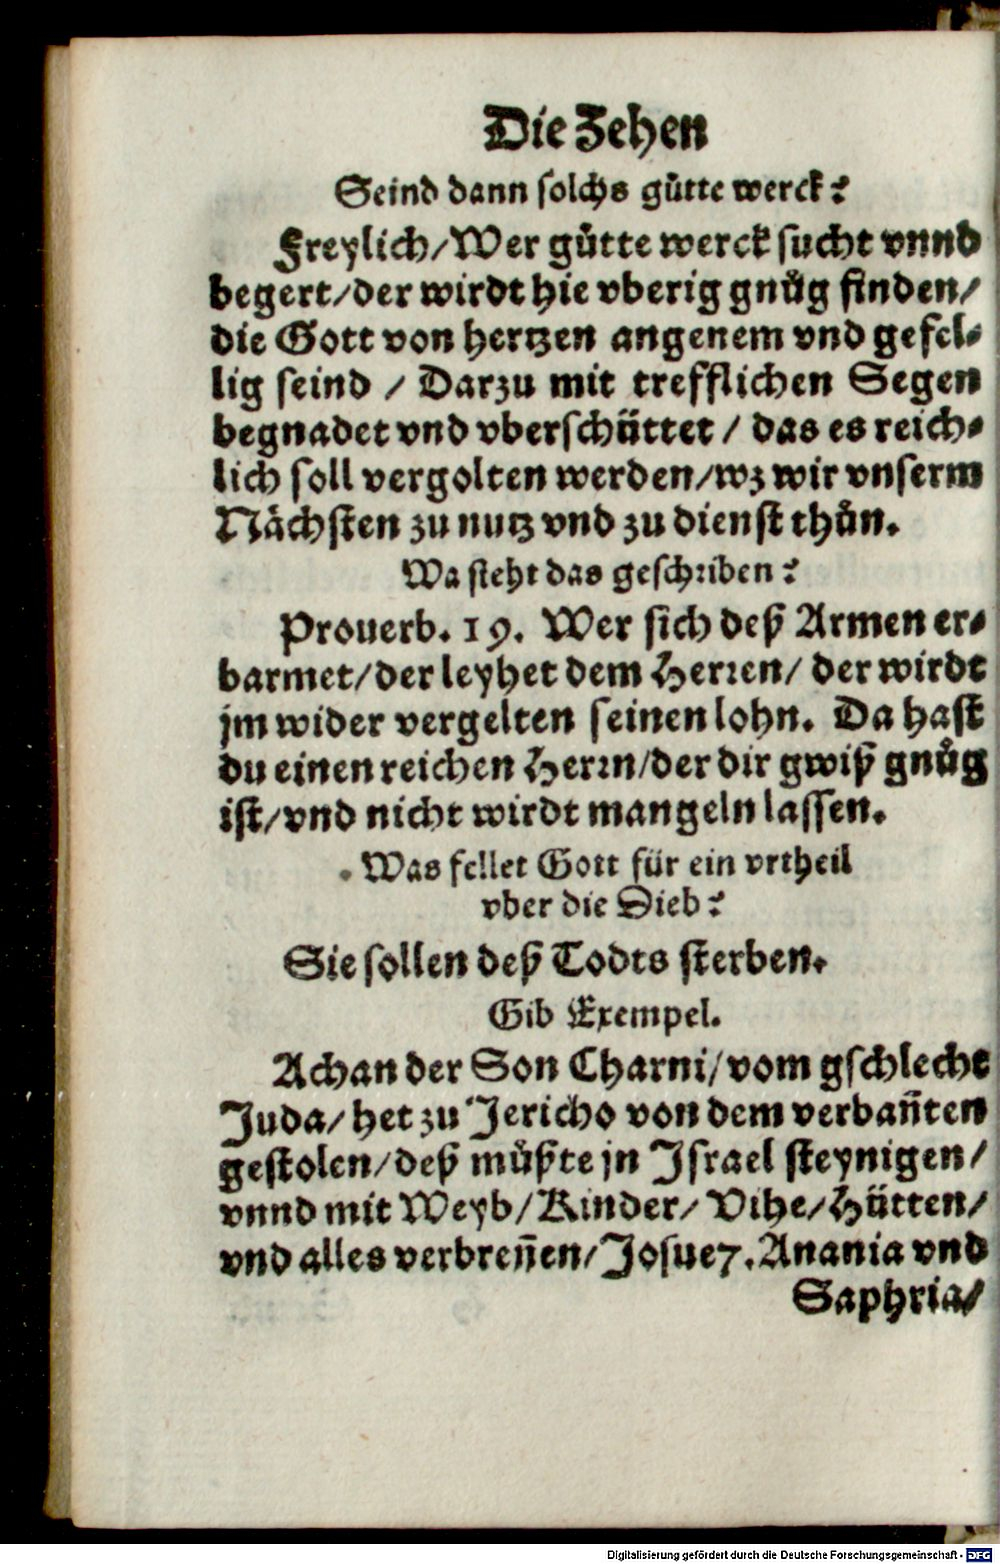 Die Zehen
Seind dann solchs gůtte werck?
Freylich/Wer gůtte werck sucht vnnd
begert/der wirdt hie vberig gnůg finden/
die Gott von hertzen angenem vnd gefel⸗
lig seind / Darzu mit trefflichen Segen
begnadet vnd vberschüttet / das es reich⸗
lich soll vergolten werden/wz wir vnserm
Nächsten zu nutz vnd zu dienst thůn.
Wa steht das geschriben?
Prouerb. 19. Wer sich deß Armen er⸗
barmet/der leyhet dem Herren/ der wirdt
jm wider vergelten seinen lohn. Da hast
du einen reichen Herrn/der dir gwiß gnůg
ist/vnd nicht wirdt mangeln lassen.
Was fellet Gott für ein vrtheil
vber die Dieb?
Sie sollen deß Todts sterben.
Gib Exempel.
Achan der Son Charni/vom gschlecht
Juda/het zu Jericho von dem verbañten
gestolen/deß můßte jn Israel steynigen/
vnnd mit Weyb/Kinder/Vihe/Hütten/
vnd alles verbreñen/Josue 7. Anania vnd
Saphria/
Digitalisierung gefördert durch die Deutsche Forschungsgemeinschaft - DFG